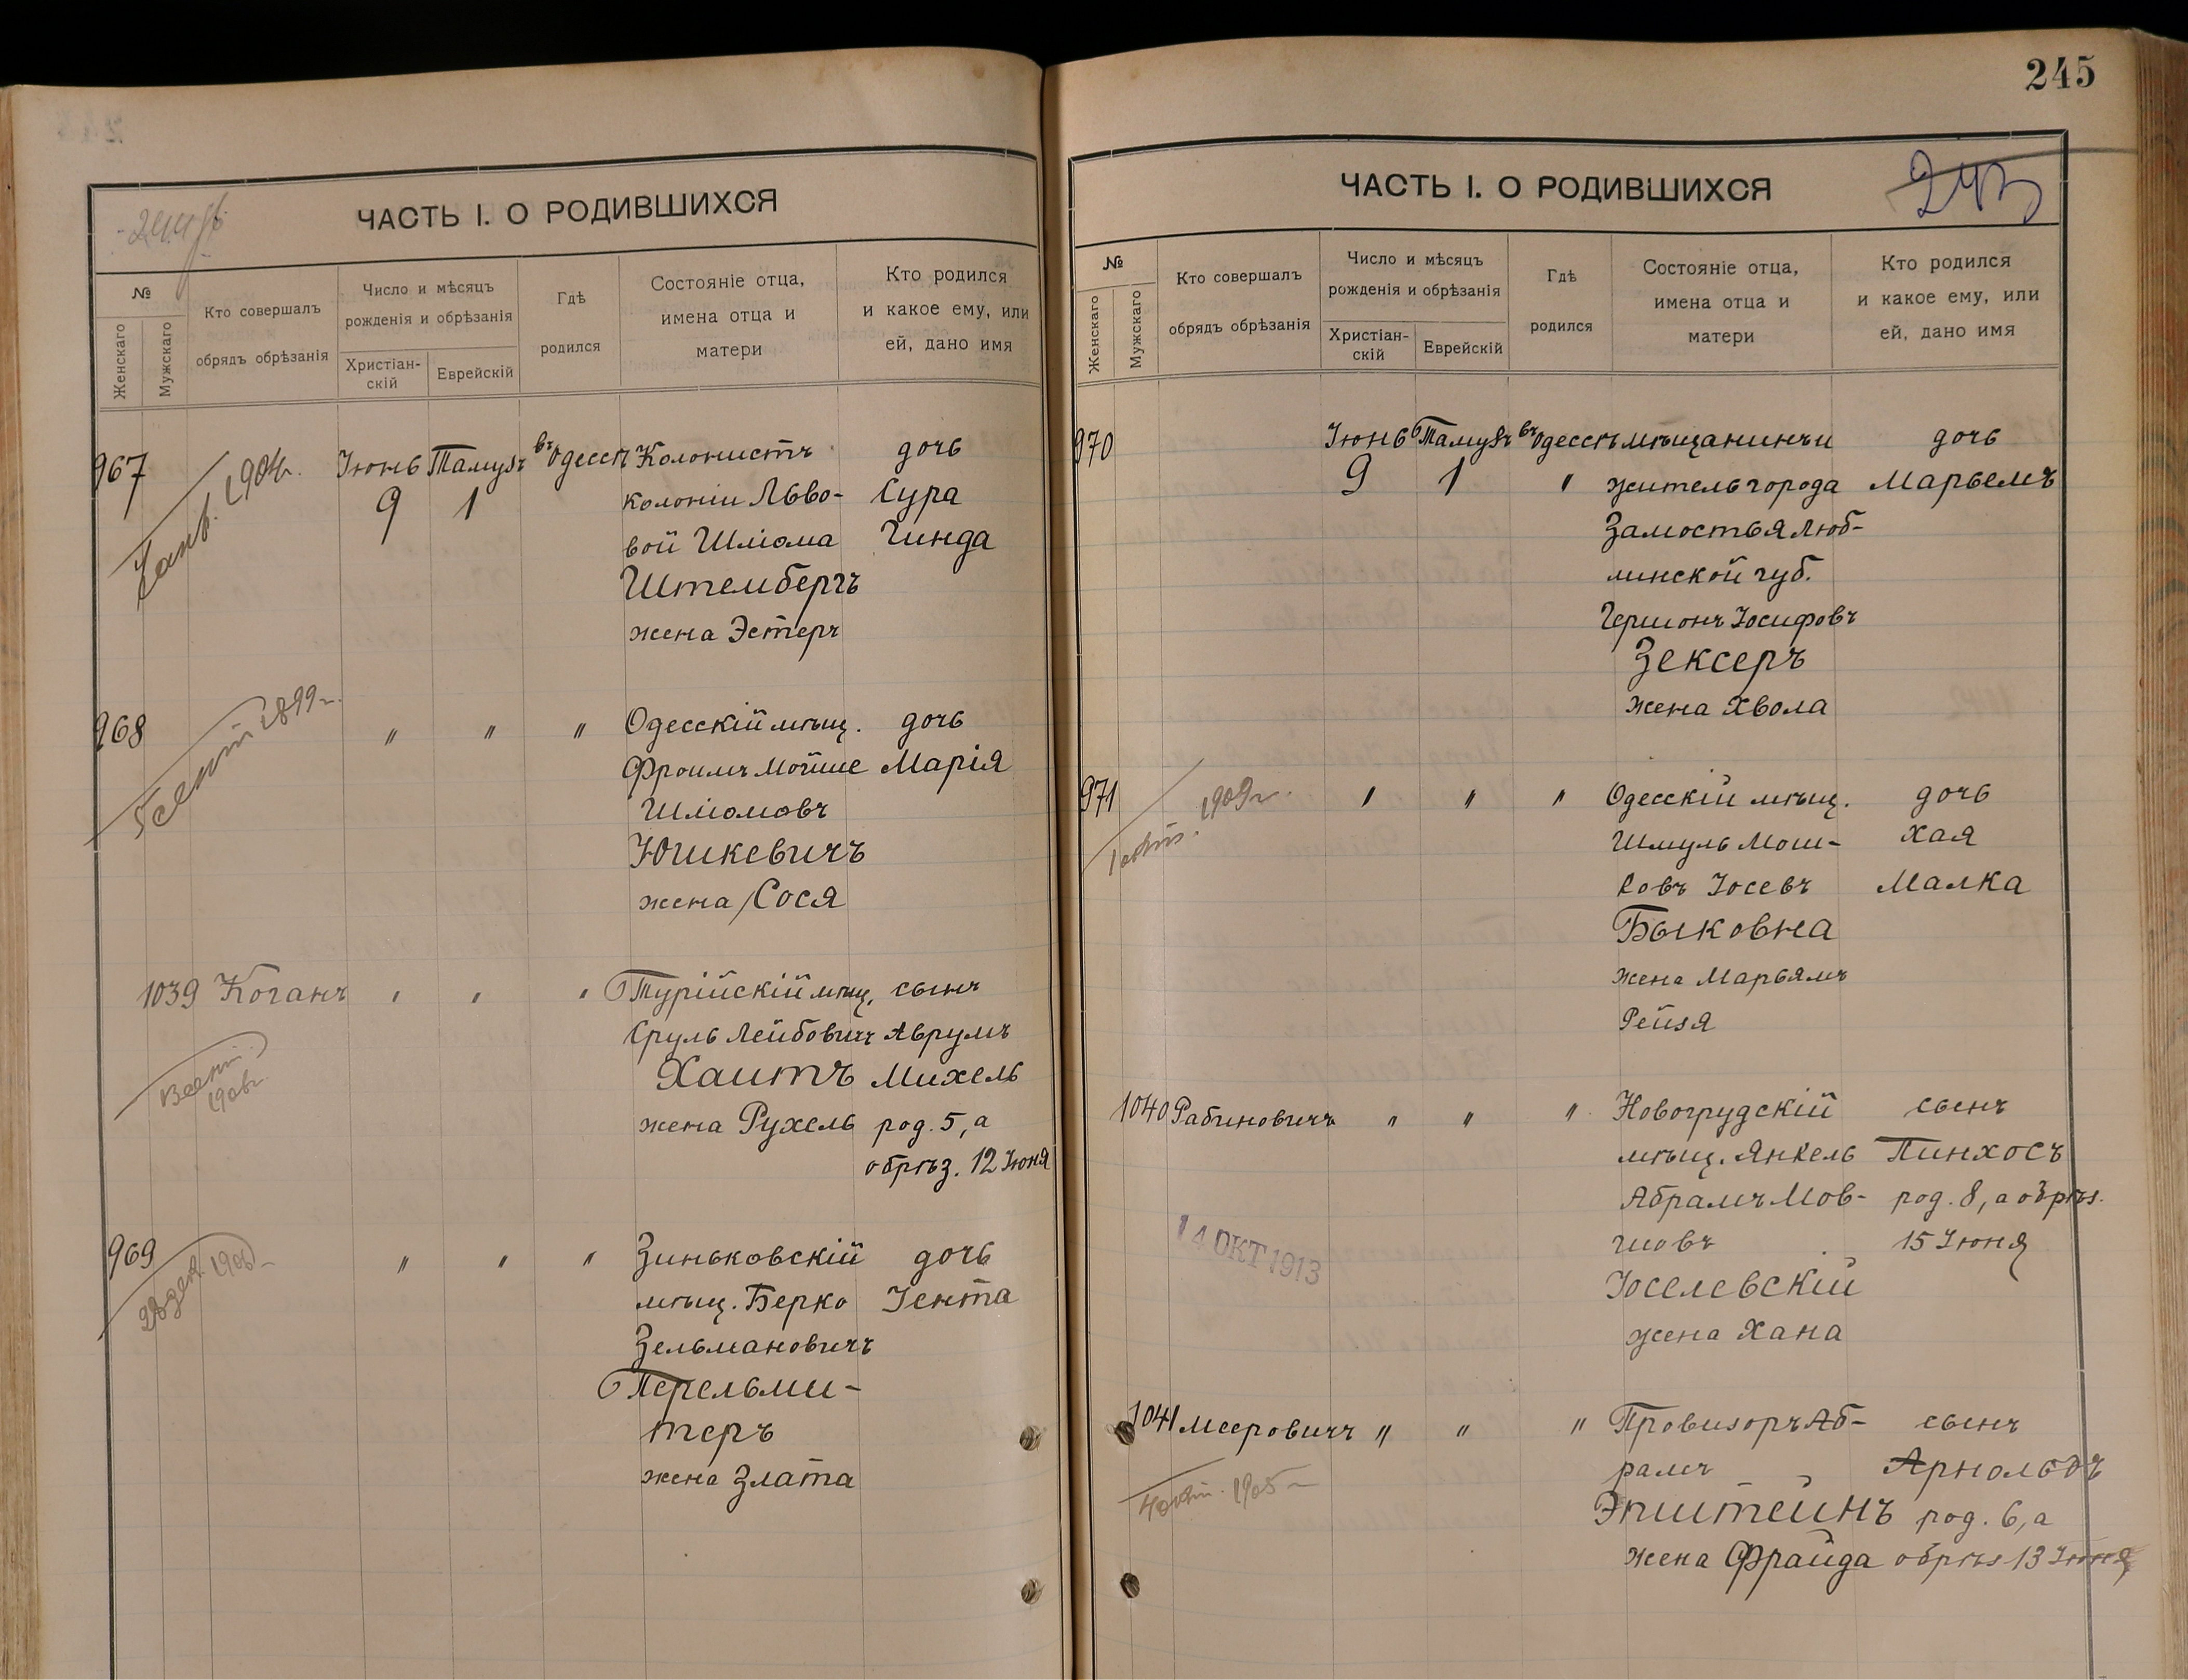 245
ЧАСТЬ I. О РОДИВШИХСЯ
№
Женскаго
Мужскаго
Кто совершалъ
обрядъ обрѣзанія
Число и мѣсяцъ
рожденія и обрѣзанія
Христіан-
скій
Еврейскій
Гдѣ
родился
Состояніе отца,
имена отца и
матери
Кто родился
и какое ему, или
ей, дано имя
967 1904г. Іюнь Тамузъ въ Одессѣ Колонистъ дочь
9 1 колоніи Льво- Сура
вой Шліома Гинда
Штембергъ
жена Эстеръ
968 1899г. " " " Одесскій мѣщ. дочь
Фроимъ Мойше Марія
Шліомовъ
Юшкевичъ
жена Сося
1039 Коганъ " " " Турійскій мѣщ. сынъ
Сруль Лейбовичъ Аврумъ
Хаитъ Михель
жена Рухель род. 5, а
обрѣз. 12 Іюня
969 " " " Зиньковскій дочь
мѣщ. Берко Іента
Зельмановичъ
Перельми-
теръ
жена Злата
ЧАСТЬ I. О РОДИВШИХСЯ
243
№
Женскаго
Мужскаго
Кто совершалъ
обрядъ обрѣзанія
Число и мѣсяцъ
рожденія и обрѣзанія
Христіан-
скій
Еврейскій
Гдѣ
родился
Состояніе отца,
имена отца и
матери
Кто родился
и какое ему, или
ей, дано имя
970 Іюнь Тамузъ въ Одессѣ мѣщанинъ и дочь
9 1 " житель города Марьемъ
Замостья Люб-
линской губ.
Гершонъ Іосифовъ
Зексеръ
жена Хвола
971 1909г. " " " Одесскій мѣщ. дочь
Шмуль Мош- Хая
ковъ Іосевъ Малка
Быковна
жена Марьямъ
Рейзя
1040 Рабиновичъ " " " Новогрудскій сынъ
мѣщ. Янкель Пинхосъ
Абрамъ Мов- род. 8, а обрѣз.
шовъ 15 Іюня
14 ОКТ 1913
Іоселевскій
жена Хана
1041 Мееровичъ " " " Провизоръ Аб- сынъ
рамъ Арнольдъ
1905 Эпштейнъ род. 6, а
жена Фрайда обрѣз 13 Іюня